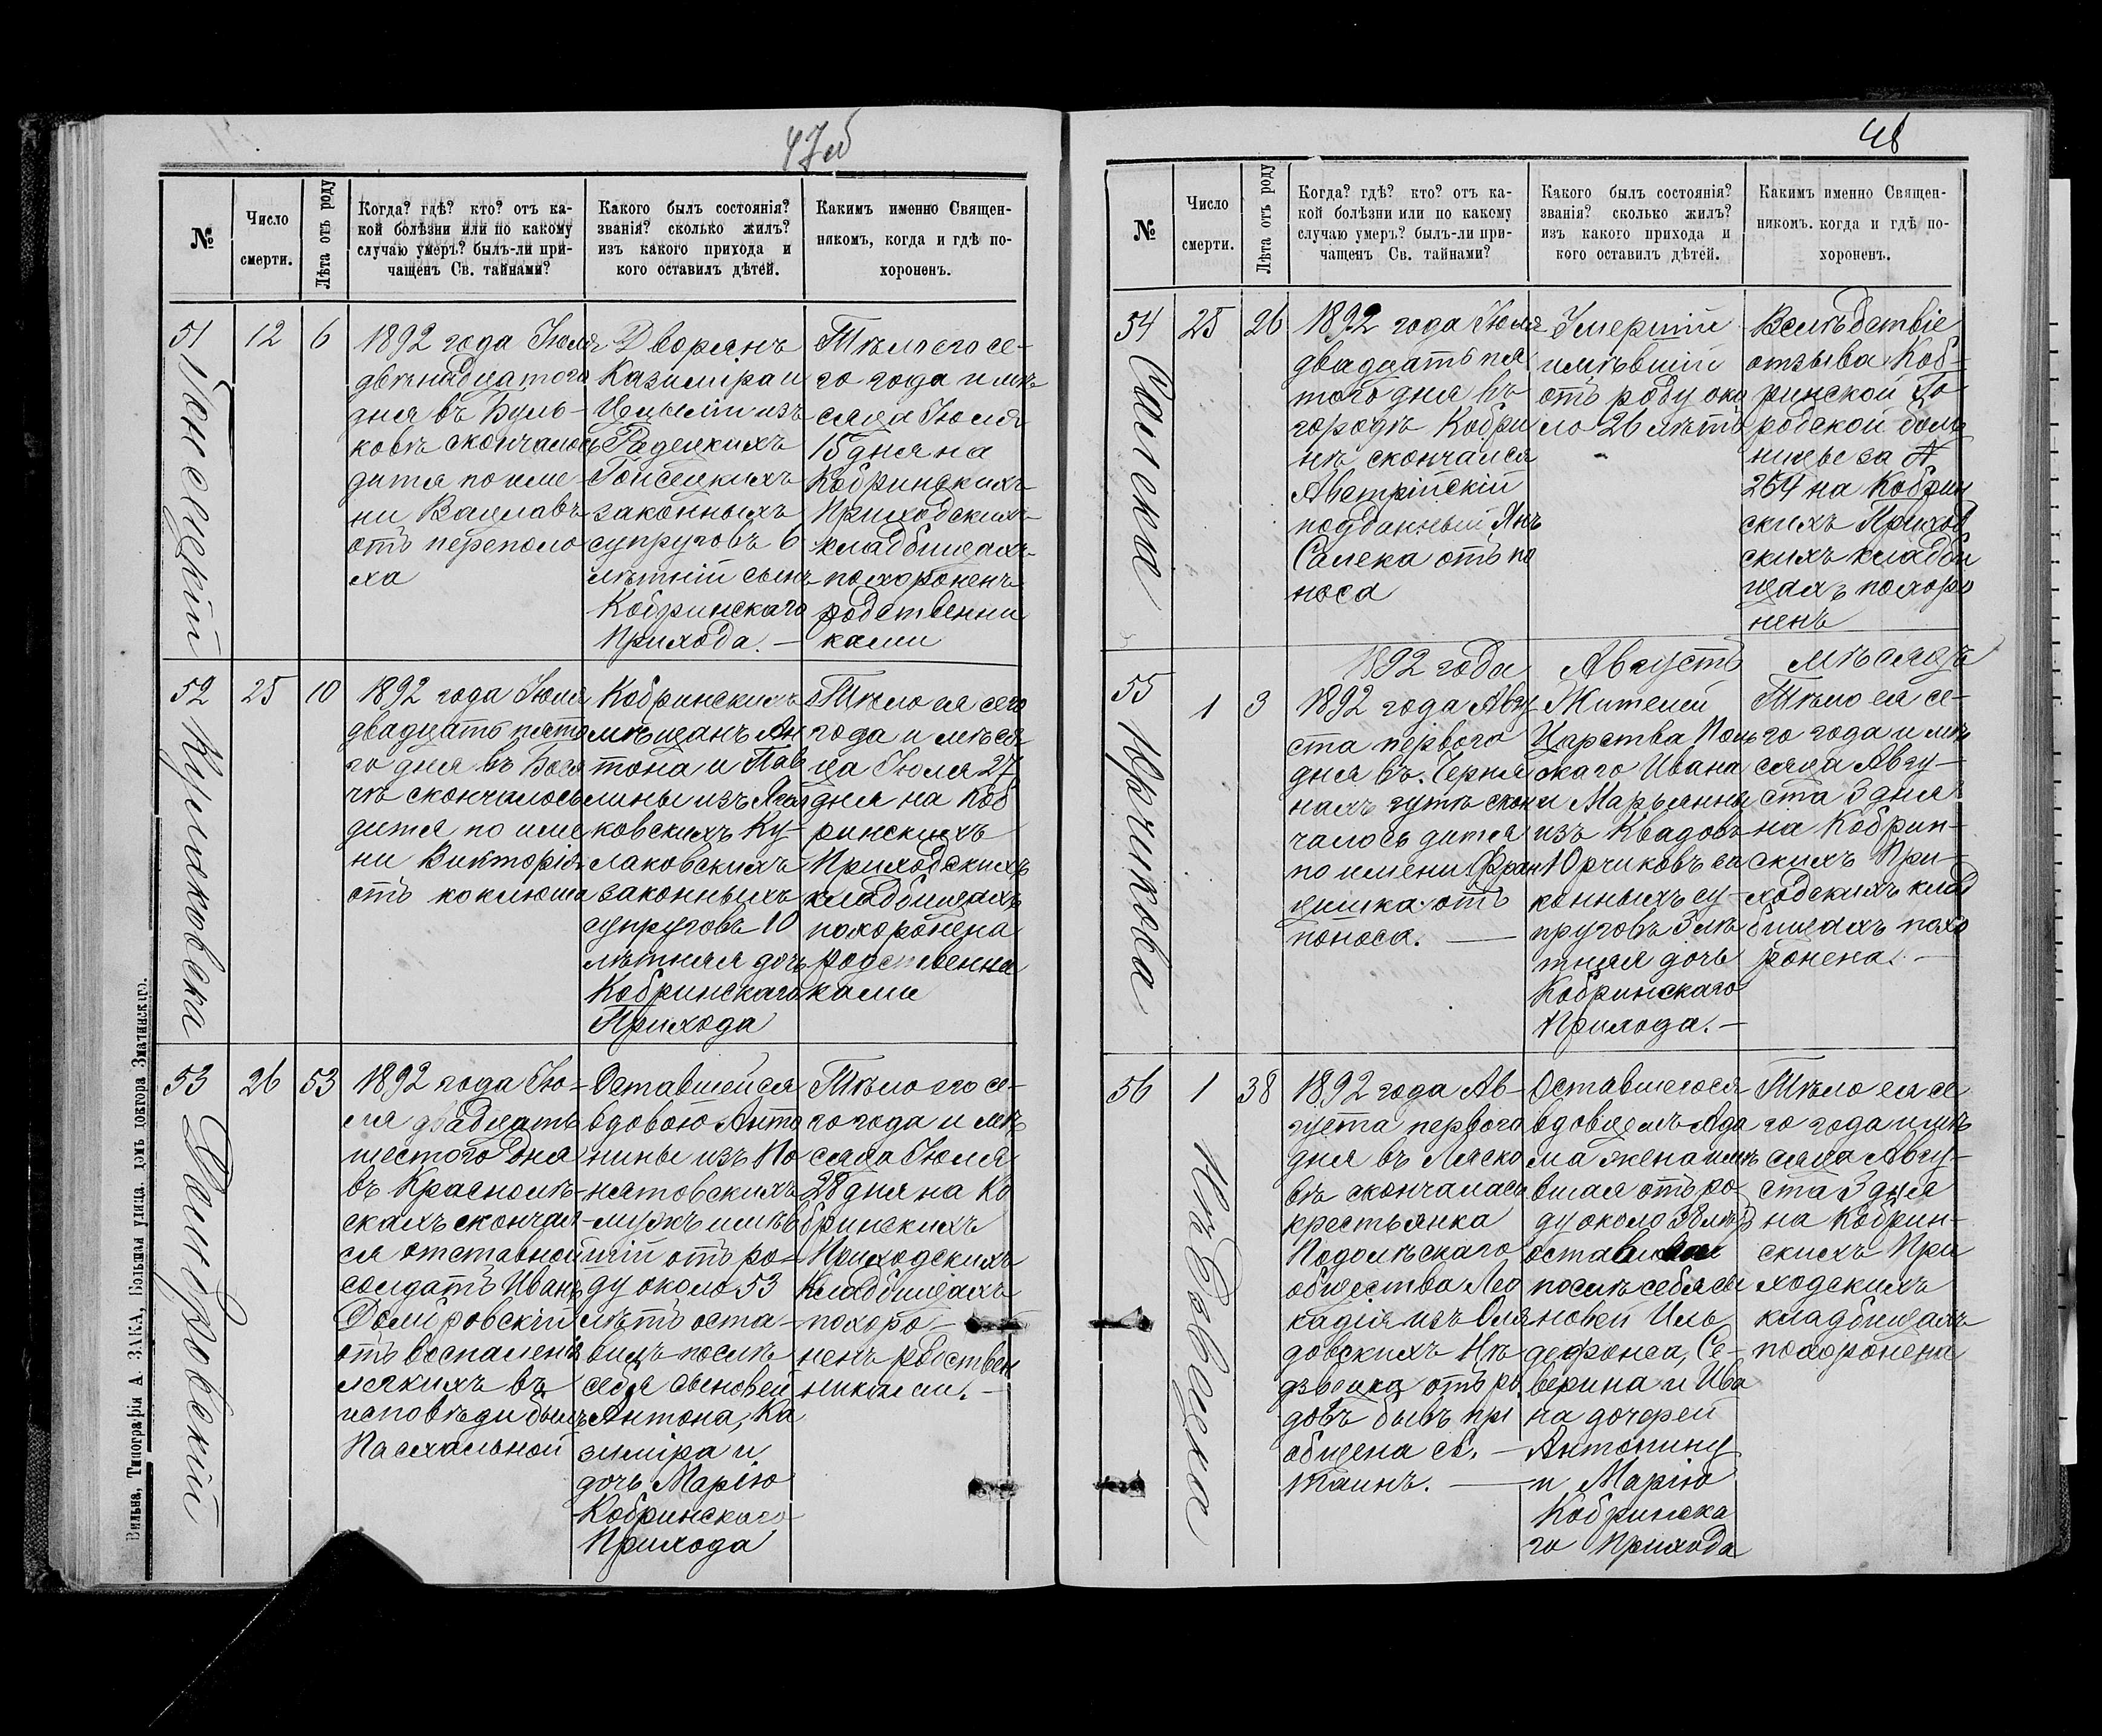 47об
№
Число
смерти.
Лѣта отъ роду
Когда? гдѣ? кто? отъ ка-
кой болѣзни или по какому
случаю умеръ? былъ-ли при-
чащенъ Св. тайнами?
Какого былъ состоянія?
званія? сколько жилъ?
изъ какого прихода и
кого оставилъ дѣтей.
Какимъ именно Священ-
никомъ, когда и гдѣ по-
хороненъ.
51
12
6
1892 года Іюля
двѣнадцатого
дня въ Буль-
ковѣ скончалось
дитя по име-
ни Вацлавъ
отъ переполо
ха
Дворянъ
Казиміра и
изъ
законныхъ
супруговъ 6
лѣтній сынъ
Кобринскаго
Прихода. —
Тѣло его се-
го года и мѣ-
сяца Іюля
15 дня на
Кобринскихъ
Приходскихъ
кладбищахъ
похороненъ
родственни
ками
52
Кулаковска
25
10
1892 года Іюля
двадцать пято
го дня въ
скончалось
дитя по име
ни Викторія
отъ коклюша
Кобринскихъ
мѣщанъ Ан
тона и Пав
лины изъ
ковскихъ Ку-
лаковскихъ
законныхъ
супруговъ 10
лѣтняя дочь
Кобринскаго
Прихода
Тѣло ея сего
года и мѣся
ца Іюля 27
дня на Коб
ринскихъ
Приходскихъ
кладбищахъ
похоронена
родственни
ками
53
Домбровскій
26
53
1892 года Ію-
ля двадцать
шестого дня
въ
скончал
ся отставной
солдатъ Иванъ
Домбровскій
отъ воспаленія
легкихъ въ
исповѣди былъ
Пасхальной
Оставшейся
вдовою Анто
нины изъ По
нятовскихъ
мужъ имѣв
шій отъ ро-
ду около 53
лѣтъ оста-
вилъ послѣ
себя сыновей
Антона, Ка
зиміра и
дочь Марію
Кобринскаго
Прихода
Тѣло его се-
го года и мѣ
сяца Іюля
28 дня на Ко
бринскихъ
Приходскихъ
Кладбищахъ
похоро-
ненъ родствен
никами. —
Вильна, Типографія А. ЗАКА, Большая улица, домъ доктора Знатинскаго.
48
№
Число
смерти.
Лѣта отъ роду
Когда? гдѣ? кто? отъ ка-
кой болѣзни или по какому
случаю умеръ? былъ-ли при-
чащенъ Св. тайнами?
Какого былъ состоянія?
званія? сколько жилъ?
изъ какого прихода и
кого оставилъ дѣтей.
Какимъ именно Священ-
никомъ, когда и гдѣ по-
хороненъ.
54
Салека
25
26
1892 года Іюля
двадцать пя
того дня въ
городѣ Кобри
нѣ скончался
Австрійскій
подданный Янъ
Салека отъ по
носа
Умершій
имѣвшій
отъ роду око
ло 26 лѣтъ
Вслѣдствіе
отзыва Коб-
ринской Го
родской боль
ницы за №
254 на Кобрин
скихъ Приход
скихъ кладби
щахъ похоро
ненъ
1892 года Августъ мѣсяцъ
55
Юрчикова
1
3
1892 года Авгу
ста первого
дня въ Черня
нахъ гутѣ скон
чалось дитя
по имени Фран
цишка отъ
поноса. —
Жителей
Царства Поль
скаго Ивана
и Марьянны
изъ Квадовъ
Юрчиковъ за
конныхъ су-
пруговъ 3 лѣ
тняя дочь
Кобринскаго
Прихода. —
Тѣло ея се-
го года и мѣ
сяца Авгу-
ста 3 дня
на Кобрин-
скихъ При-
ходскихъ клад
бищахъ похо
ронена. —
56
1
38
1892 года Ав-
густа первого
дня въ Ляско
вѣ скончалась
крестьянка
Подолѣскаго
общества Лео
кадія изъ Оля
довскихъ Нѣ
дзвецка отъ ро
довъ бывъ прі
общена св. —
таинъ. —
Оставшегося
вдовцемъ Ада
ма жена имѣ
вшая отъ ро
ду около 38 лѣтъ
оставила
послѣ себя сы
новей Иль
дефонса, Се-
верина и Ива
на дочерей
Антонину
и Марію
Кобринска
го Прихода
Тѣло ея се
го года и мѣ
сяца Авгу-
ста 3 дня
на Кобрин-
скихъ При
ходскихъ
кладбищахъ
похоронена